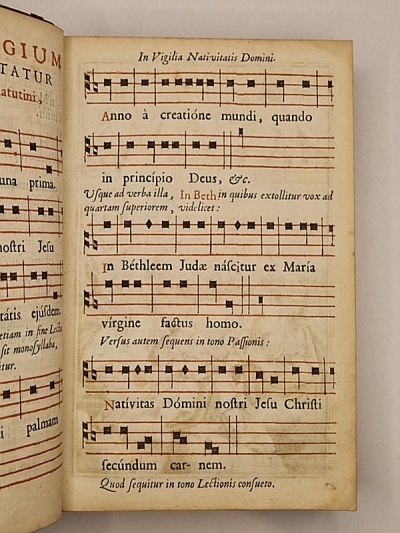 GIUM
TATUR
atutini,
una prima.
nostri Jesu
tátis ejusdem.
etiam in fine Lectio
sit monosyllaba,
itur.
i palmam
In Vigilia Nativitatis Domini.
Anno à creatióne mundi, quando
in princípio Deus, &c.
Usque ad verba illa, In Beth in quibus extollitur vox ad
quartam superiorem, videlicet:
In Béthleem Judæ náscitur ex María
vírgine factus homo.
Versus autem sequens in tono Passionis:
Natívitas Dómini nostri Jesu Christi
secúndum car- nem.
Quod sequitur in tono Lectionis consueto.